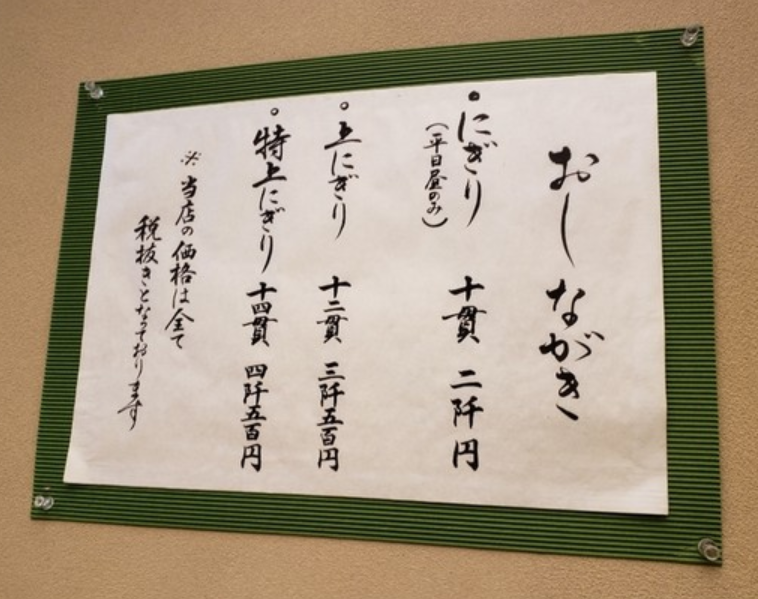 おしながき
。にぎり 十貫 二阡円
(平日昼のみ)
。上にぎり 十二貫 三阡五百円
。特上にぎり 十四貫 四阡五百円
※ 当店の価格は全て
税抜きとなっております